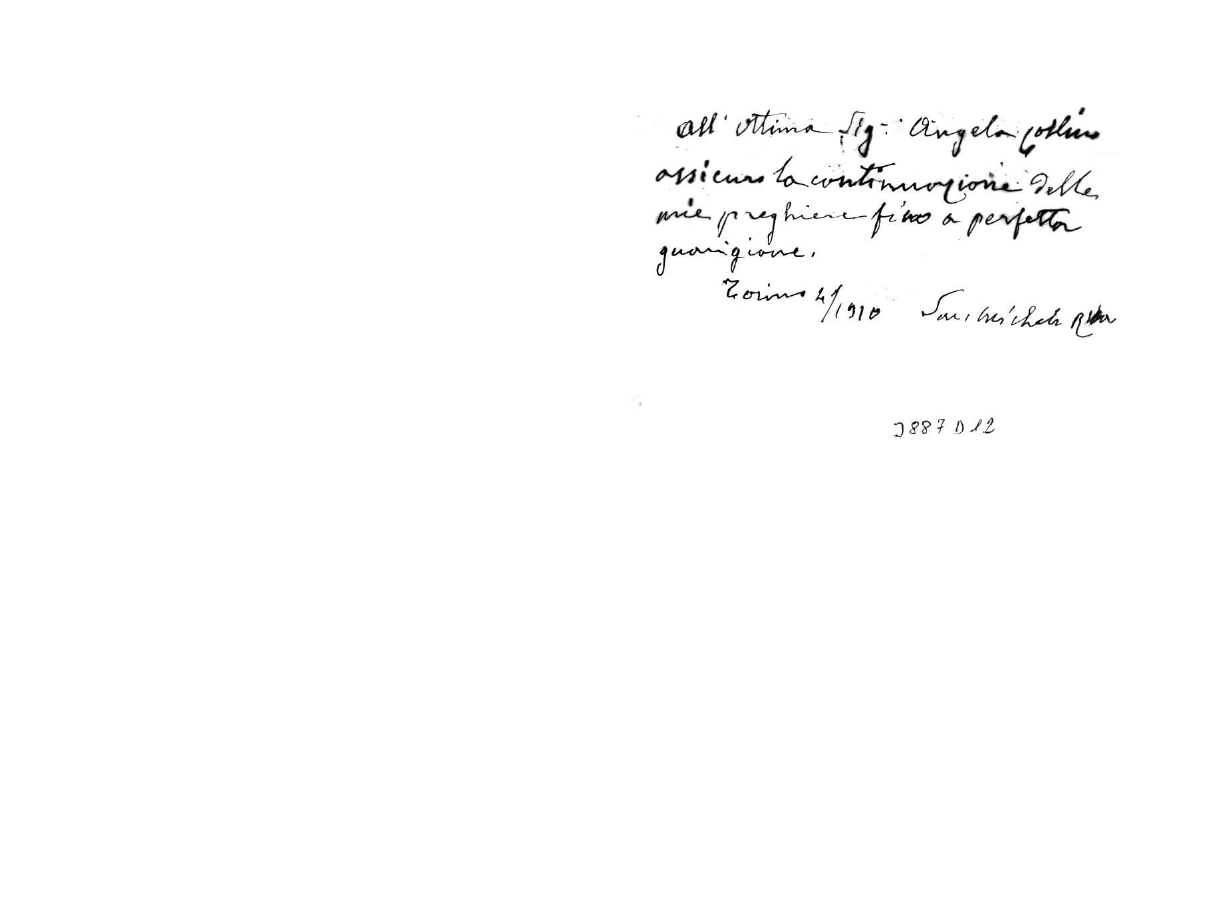 all' ottima Sig.ª Angela
assicuro la continuazione delle
mie preghiere fino a perfetta
guarigione.
Torino 4/1910 Sac. Michele Rua
J887 D12